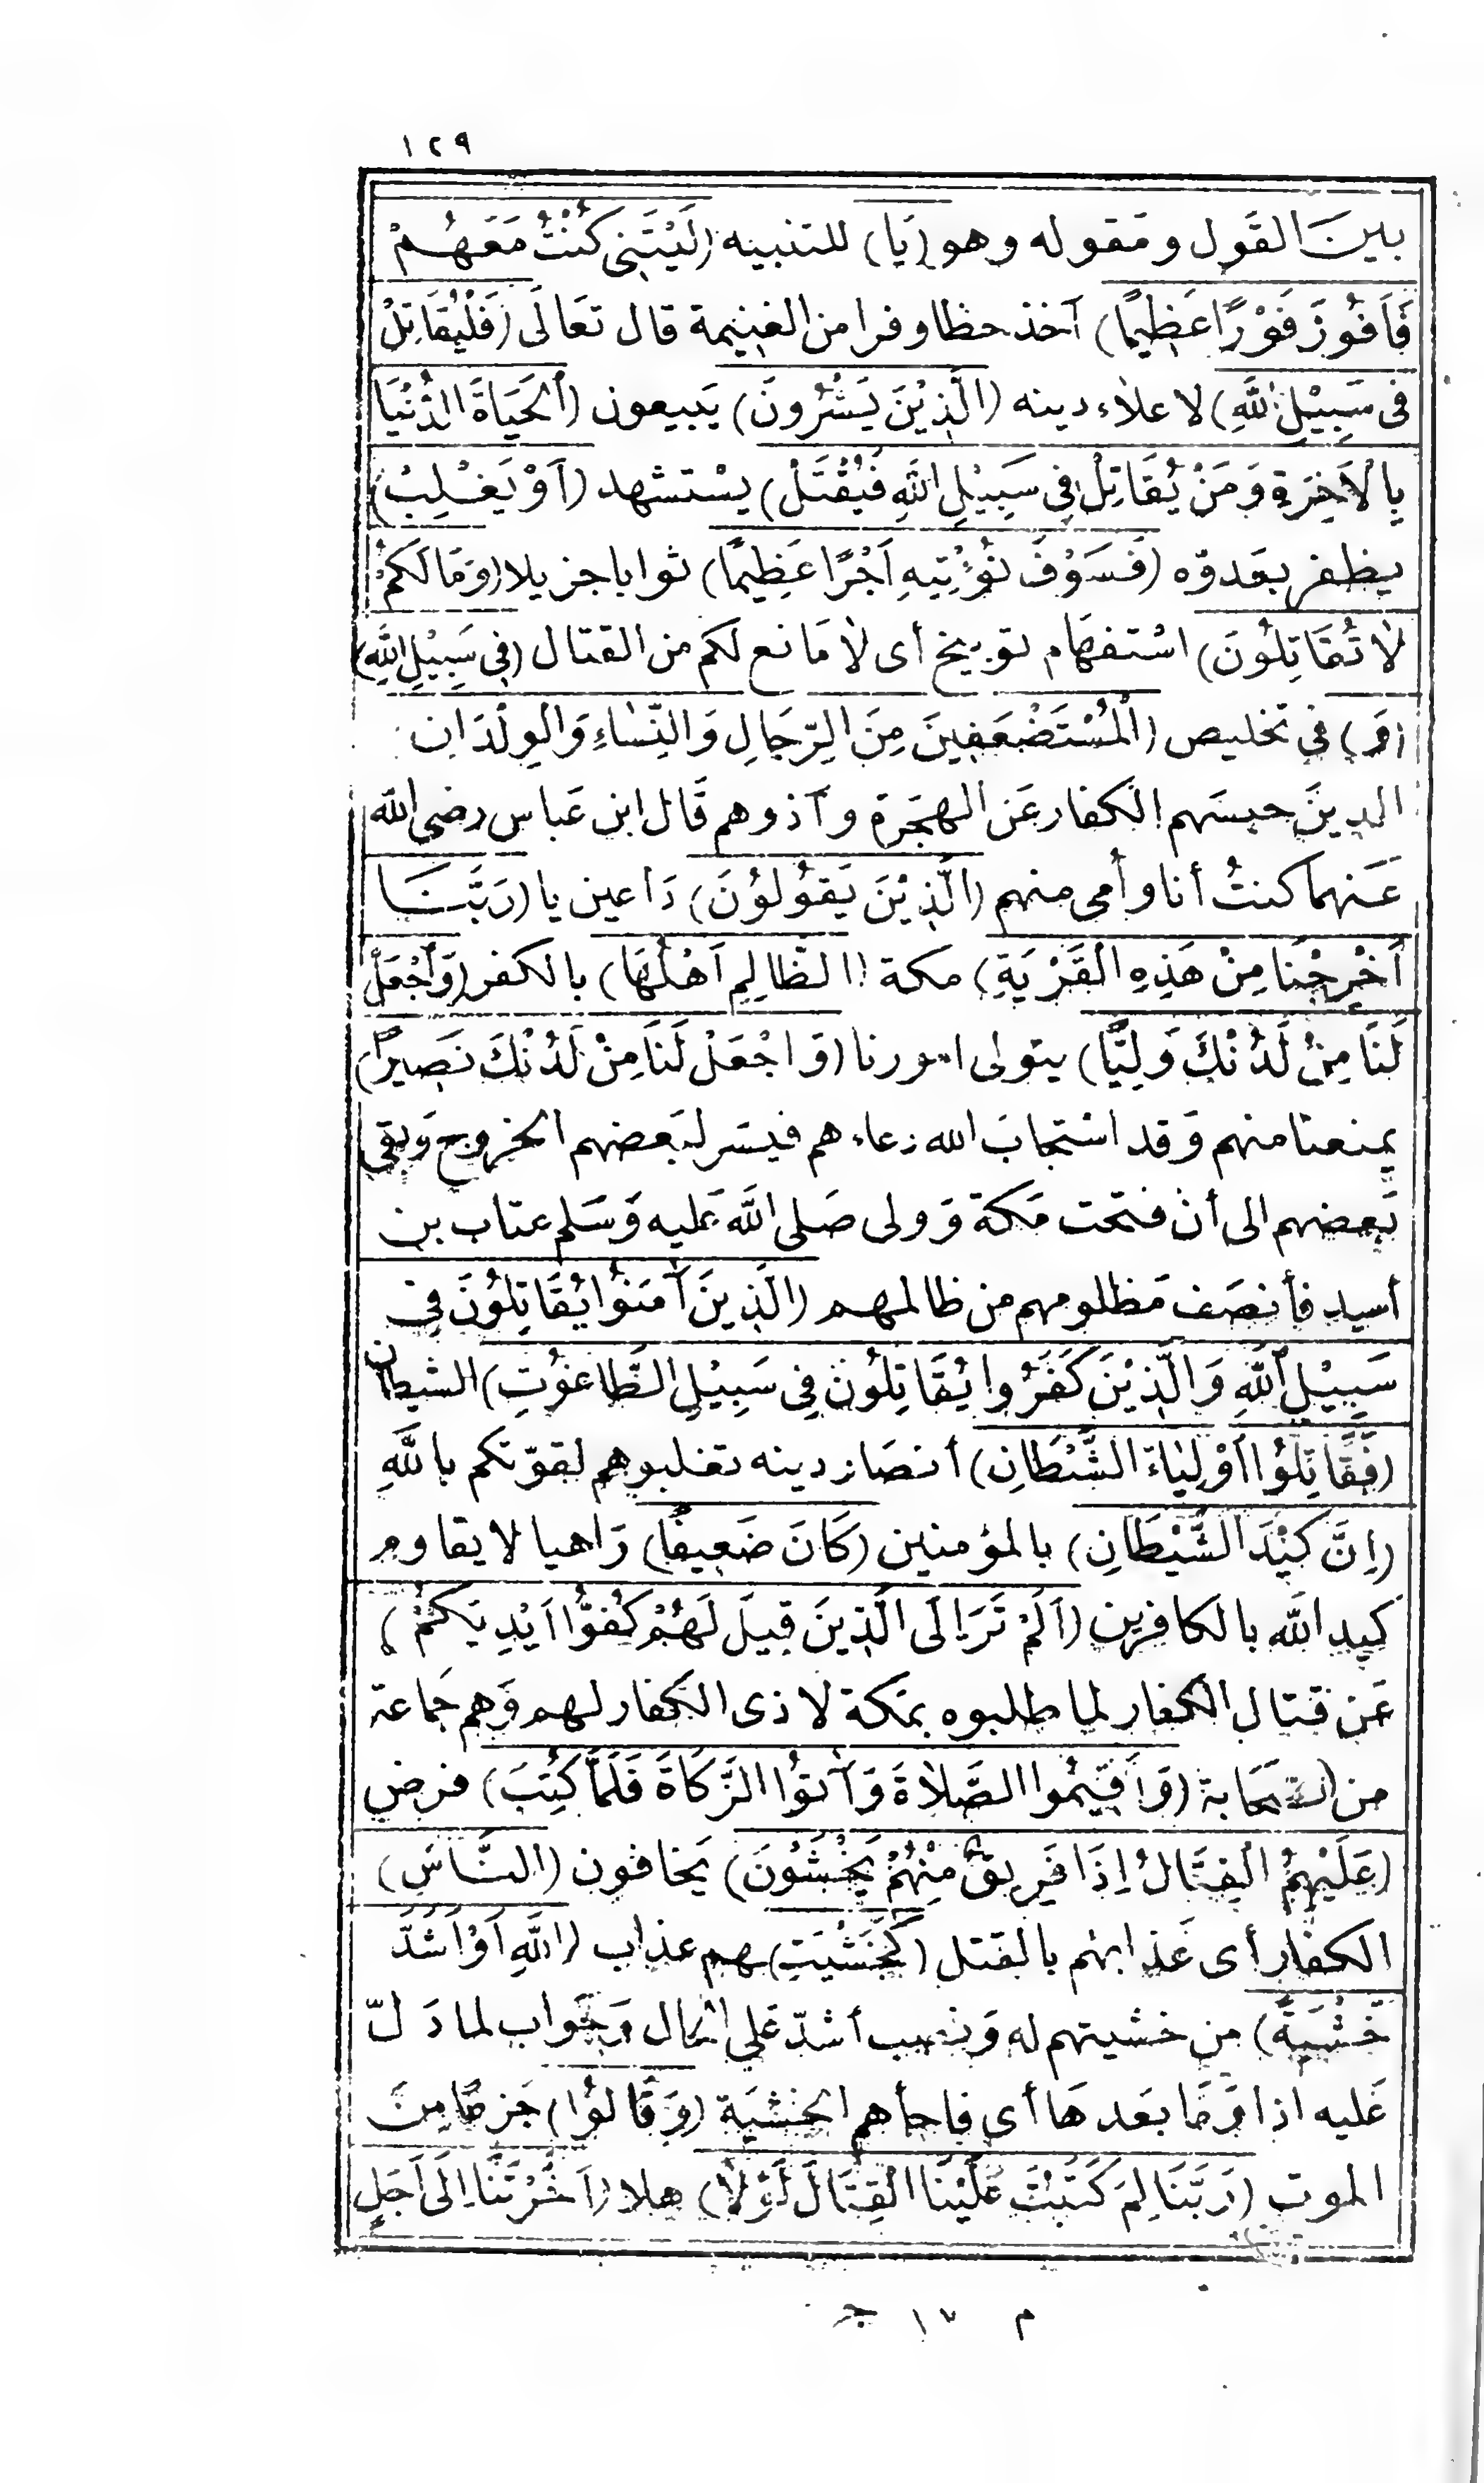 ١٢٩
بينَ القَول ومَقوله وهو (يَا) للتنبيه (لَيْتَنِى كُنْتُ مَعَهُمْ
فَاَفُوْزَ فَوْزًا عَظِيمًا) آخذ حظا وفرا من الغنيمة قال تعَالَى (فَلْيُقَاتِلْ
فى سَبِيْلِ اللَّهِ) لاعلاء دينه (الَّذِيْنَ يَشْرُونَ) يَبيعون (الْحَيَاةَ الدُّنْيَا
بِالْاَخِرَةِ وَمَنْ يُقَاتِلْ فِى سَبِيْلِ اللَّهِ فَيُقْتَلْ) يسْتشهد (اَوْ يَغْلِبْ)
يظفر بعَدوّه (فَسَوْفَ نُؤْتِيهِ اَجْرًا عَظِيمًا) ثوابا جزيلا (وَمَا لَكُمْ
لَا تُقَاتِلُونَ) اسْتفهَام توبيخ أى لا مَانع لكم من القتال (فِى سَبِيْلِ اللَّهِ)
(وَ) فى تخليص (الْمُسْتَضْعَفِينَ مِنَ الرِّجَالِ وَالنِّسَاءِ وَالْوِلْدَانِ
الذينَ حبسَهم الكفار عَن الهجَرة وآذوهم قَال ابن عَباس رضى الله
عَنهما كنتُ أنا وأمى منهم (الَّذِيْنَ يَقُوْلُوْنَ) دَاعين يا (رَبَّنَا
اَخْرِجْنَا مِنْ هَذِهِ الْقَرْيَةِ) مكة (الظَّالِمِ اَهْلُهَا) بالكفر (وَاجْعَلْ
لَنَا مِنْ لَدُنْكَ وَلِيًّا) يتولى امورنا (وَاجْعَلْ لَنَا مِنْ لَدُنْكَ نَصِيرًا)
يمنعنا منهم وَقد اسْتجابَ الله دعاءهم فيسَر لبَعضهم الخروج وَبقى
بَعضهم الى أن فتحت مَكة وَولى صَلى اللَّه عَليه وَسَلم عتاب بن
أسيد فأنصَف مَظلومهم من ظالمهم (الَّذِينَ آمَنُوْا يُقَاتِلُوْنَ فِى
سَبِيْلِ اللَّهِ وَالَّذِيْنَ كَفَرُوا يُقَاتِلُوْنَ فِى سَبِيْلِ الطَّاغُوْتِ) الشيطان
(فَقَاتِلُوْا اَوْلِيَاءَ الشَّيْطَانِ) أنصَار دينه تغلبوهم لقوّتكم باللَّهِ
(اِنَّ كَيْدَ الشَّيْطَانِ) بالمؤمنين (كَانَ ضَعِيفًا) وَاهيا لا يقاوم
كيد اللَّه بالكافرين (اَلَمْ تَرَ اِلَى الَّذِينَ قِيلَ لَهُمْ كُفُّوْا اَيْدِيَكُمْ)
عَن قتال الكفار لما طلبوه بمَكة لاذى الكفار لهم وَهم جَماعة
من الصحَابة (وَاَقِيْمُوا الصَّلَاةَ وَآتُوْا الزَّكَاةَ فَلَمَّا كُتِبَ) فرض
(عَلَيْهِمُ الْقِتَالُ اِذَا فَرِيقٌ مِنْهُمْ يَخْشَوْنَ) يَخافون (النَّاسَ)
الكفار أى عَذابهم بالقَتل (كَخَشْيَتِ) هم عذاب (اللَّهِ اَوْ اَشَدَّ
خَشْيَةً) من خشيتهم له وَنصب أشدّ عَلى الحال وَجَواب لما دَلّ
عَليه اذا وَمَا بعَدهَا أى فاجأهم الخشيَة (وَقَالُوْا) جَزعًا مِنَ
الموت (رَبَّنَا لِمَ كَتَبْتَ عَلَيْنَا الْقِتَالَ لَوْلَا) هلا (اَخَّرْتَنَا اِلَى اَجَلٍ
م ١٧ جـ